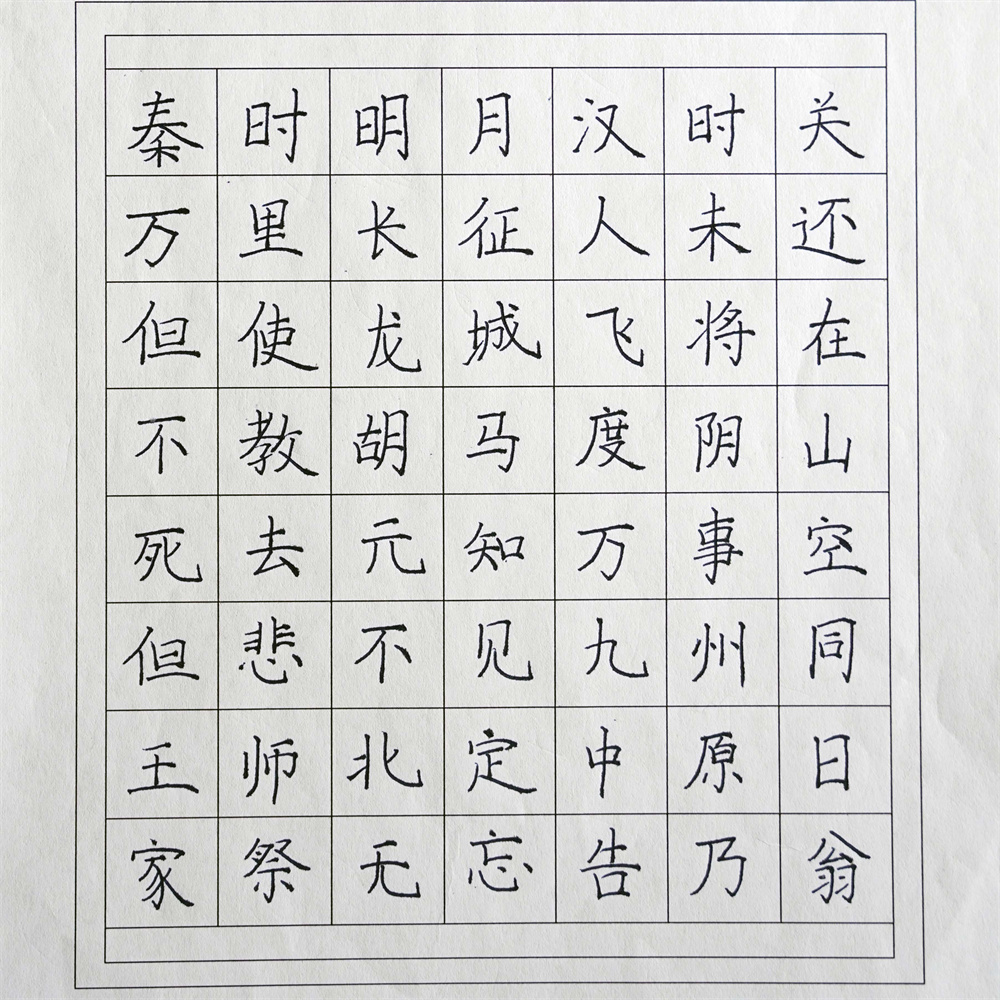 秦时明月汉时关
万里长征人未还
但使龙城飞将在
不教胡马度阴山
死去元知万事空
但悲不见九州同
王师北定中原日
家祭无忘告乃翁